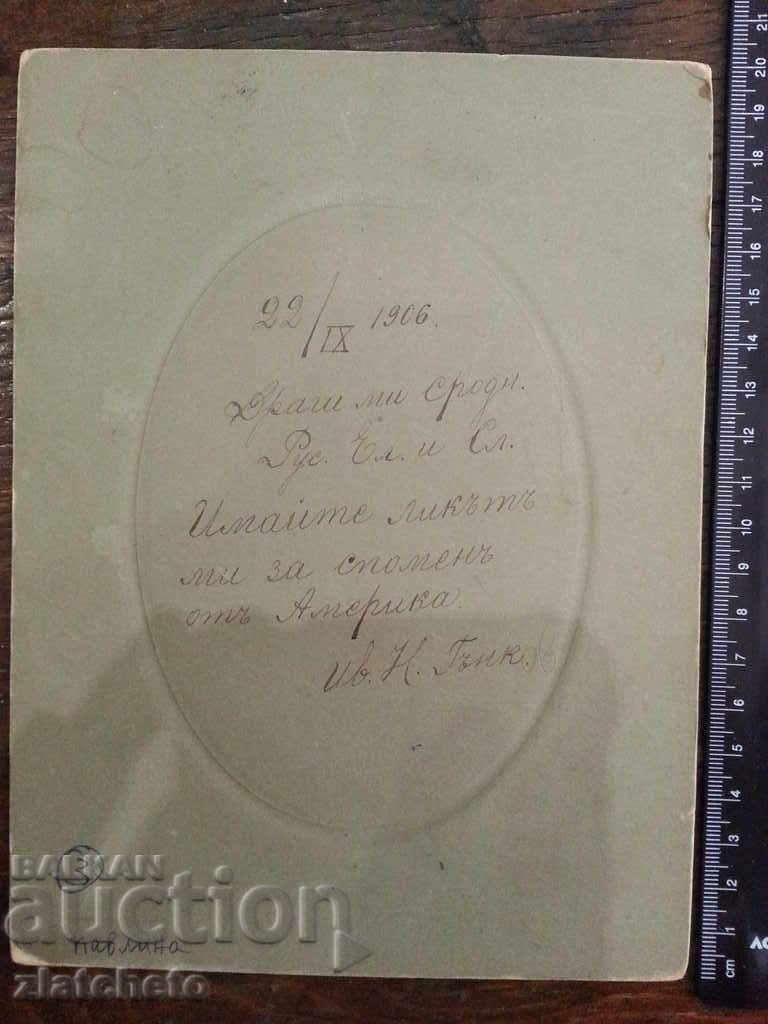 22/IX 1906.
Драги ми сродн.
Рус. Ел. и Сл.
Имайте ликътъ
ми за споменъ
отъ Америка.
Ив. Н. Гънк.
BALKAN
auction
павлина
zlatcheto
cm 1 2 3 4 5 6 7 8 9 10 11 12 13 14 15 16 17 18 19 20 21